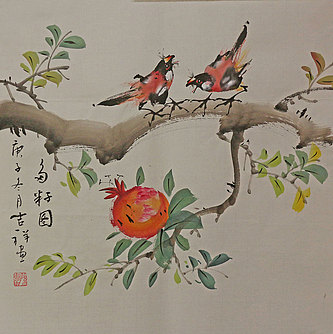 多籽图
庚子冬月吉祥画